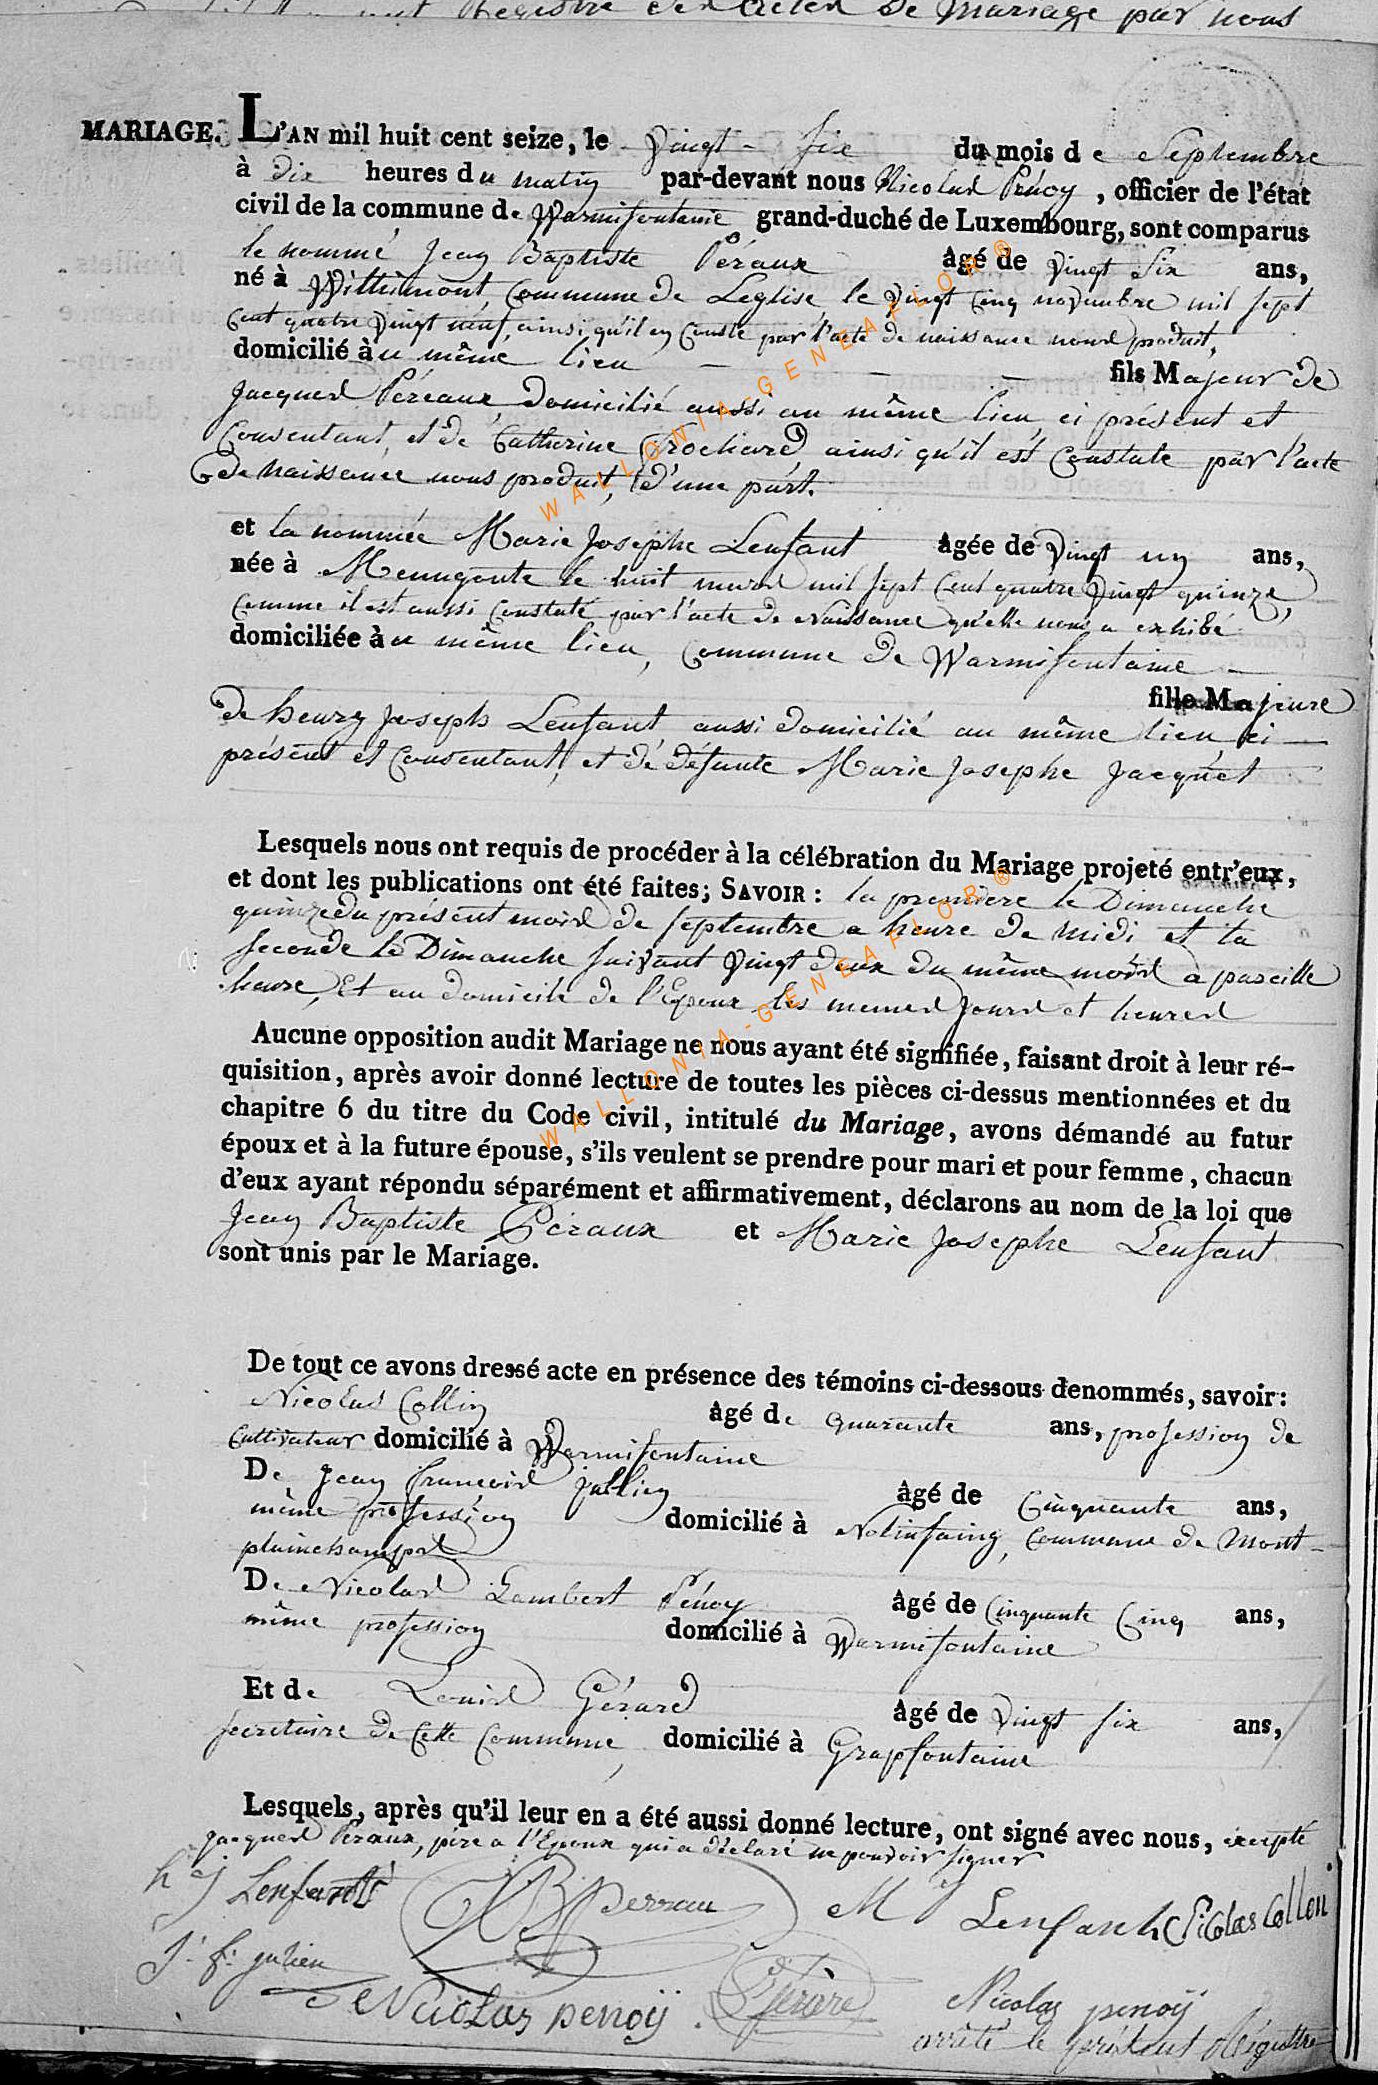 Registre des Actes de Mariage par nous
MARIAGE. L'AN mil huit cent seize, le Vingt-Six du mois de Septembre
à dix heures du matin par-devant nous Nicolas Pénoy, officier de l'état
civil de la commune de Warmifontaine grand-duché de Luxembourg, sont comparus
le nommé Jean Baptiste Péraux âgé de Vingt Six ans,
né à Withimont, Commune de Leglise le Vingt Cinq novembre mil sept
Cent quatre Vingt neuf, ainsi qu'il en Conste par l'acte de naissance nous produit,
domicilié au même lieu fils Majeur de
Jacques Péreaux domicilié aussi au même lieu, ci présent et
Consentant, et de Catherine Crochard ainsi qu'il est Constate par l'acte
de Naissance nous produit, d'une part.
et la nommée Marie Josephe Lenfant agée de Vingt un ans,
née à Menugoute le huit mars mil sept Cent quatre Vingt quinze,
comme il est aussi Constaté par l'acte de Naissance qu'elle nous a exhibé
domiciliée au même lieu, Commune de Warmifontaine
fille Majeure
de henry Joseph Lenfant, aussi domicilié au même lieu, ci
présent et Consentant, et de défunte Marie Josephe Jacquet
Lesquels nous ont requis de procéder à la célébration du Mariage projeté entr'eux,
et dont les publications ont été faites; SAVOIR: la première le Dimanche
quinze du présent mois de septembre a heure de midi et la
seconde le Dimanche suivant Vingt deux du même mois à pareille
heure, Et au domicile de l'Epoux les memes jours et heures
Aucune opposition audit Mariage ne nous ayant été signifiée, faisant droit à leur ré-
quisition, après avoir donné lecture de toutes les pièces ci-dessus mentionnées et du
chapitre 6 du titre du Code civil, intitulé du Mariage, avons démandé au futur
époux et à la future épouse, s'ils veulent se prendre pour mari et pour femme, chacun
d'eux ayant répondu séparément et affirmativement, déclarons au nom de la loi que
Jean Baptiste Péraux et Marie Josephe Lenfant
sont unis par le Mariage.
De tout ce avons dressé acte en présence des témoins ci-dessous denommés, savoir:
Nicolas Collin âgé de quarante ans, profession de
Cultivateur domicilié à Warmifontaine
De Jean francois Jullien âgé de Cinquante ans,
même profession domicilié à Nolinfaing, Commune de Mont-
plainchamps
De Nicolas Lambert Pénoy âgé de Cinquante Cinq ans,
même profession domicilié à Warmifontaine
Et de Louis Gérard âgé de Vingt six ans,
secretaire de Cette Commune, domicilié à Grapfontaine
Lesquels, après qu'il leur en a été aussi donné lecture, ont signé avec nous, excepté
Jacques Péraux, père a l'Epoux qui a déclaré ne pouvoir signer
h j Lenfant JB perreau M J Lenfant Nicolas Collin
J. f. julien Nicolas penoÿ L Gérard Nicolas penoÿ
arrêté le présent Régistre
WALLONIA-GENEAFLOR®
WALLONIA-GENEAFLOR®